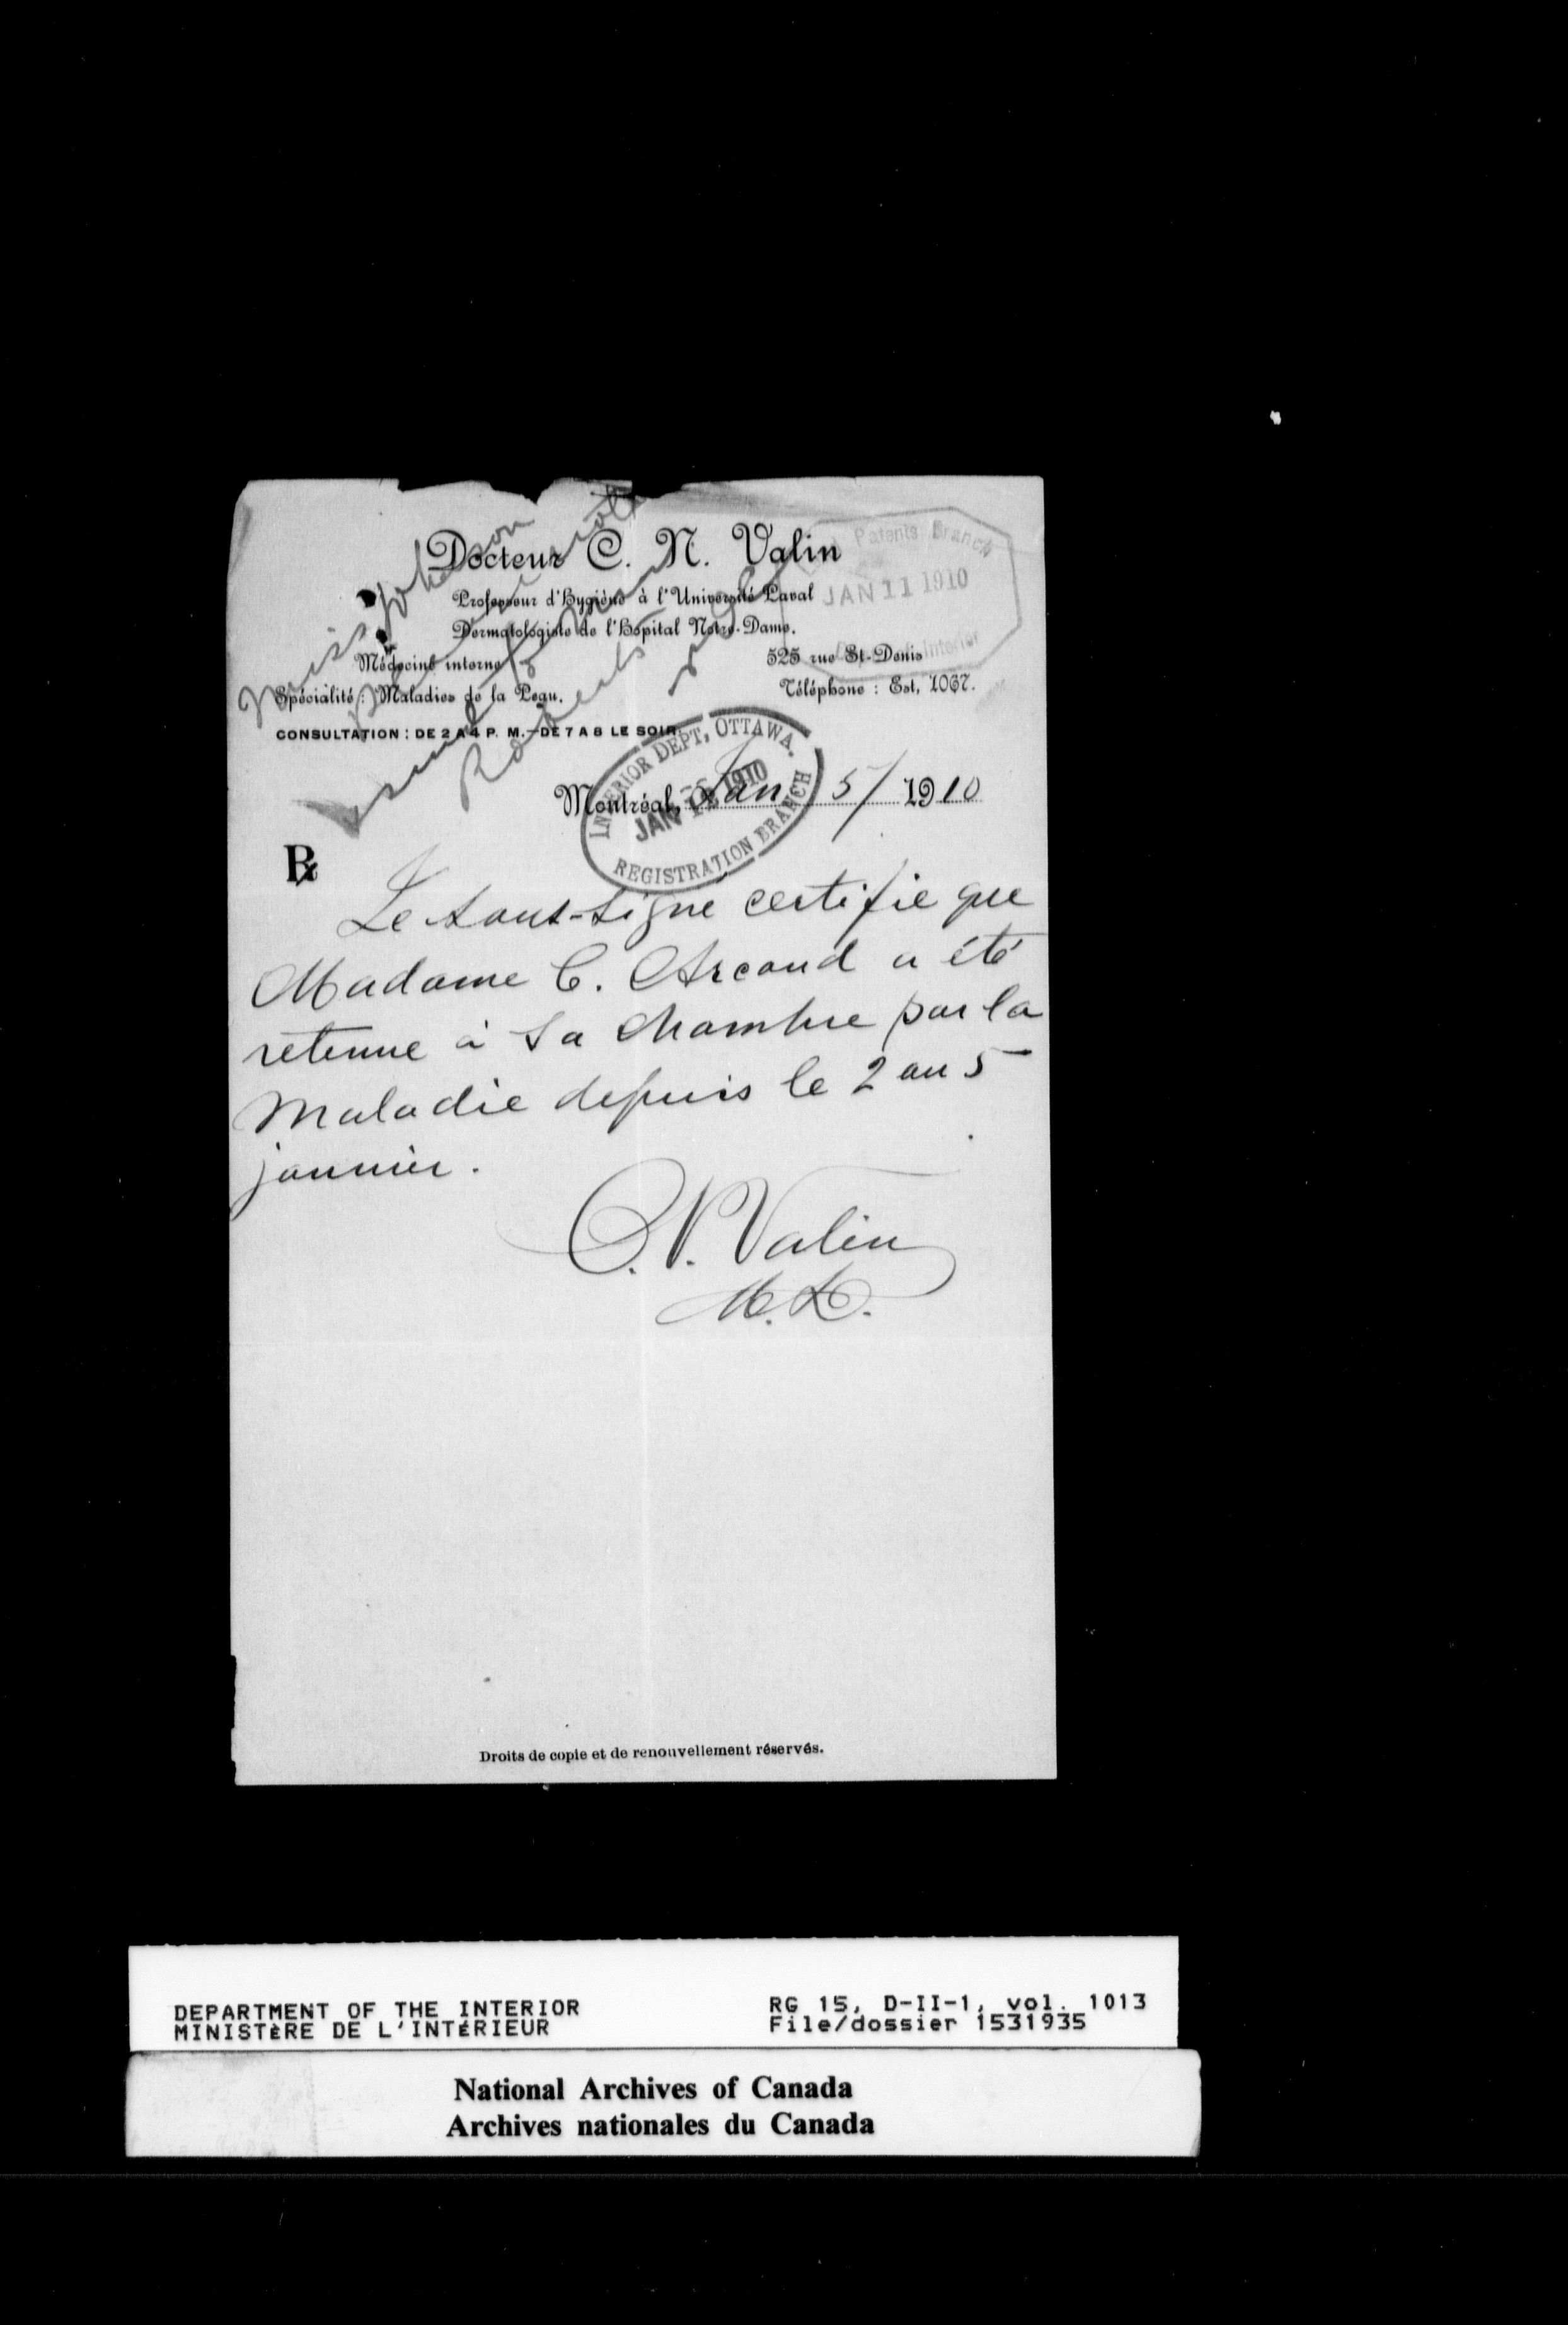 Docteur C. N. Valin
Professeur d'Hygiène à l'Université Laval
Dermatologiste de l'Hôpital Notre-Dame.
Médecine interne
Spécialité: Maladies de la Peau.
525 rue St-Denis
Téléphone : Est, 1067.
CONSULTATION : DE 2 A 4 P. M.—DE 7 A 8 LE SOIR.
Patents Branch
JAN 11 1910
Interior
Miss Johnson
Roberts
INTERIOR DEPT, OTTAWA.
JAN 1910
REGISTRATION BRANCH
Montréal, Jan 5/ 1910
℞
Le sous-signé certifie que
Madame C. Arcand a été
retenue à sa chambre par la
maladie depuis le 2 au 5
janvier.
C. N. Valin
M. D.
Droits de copie et de renouvellement réservés.
DEPARTMENT OF THE INTERIOR
MINISTèRE DE L'INTÉRIEUR
RG 15, D-II-1, vol. 1013
File/dossier 1531935
National Archives of Canada
Archives nationales du Canada